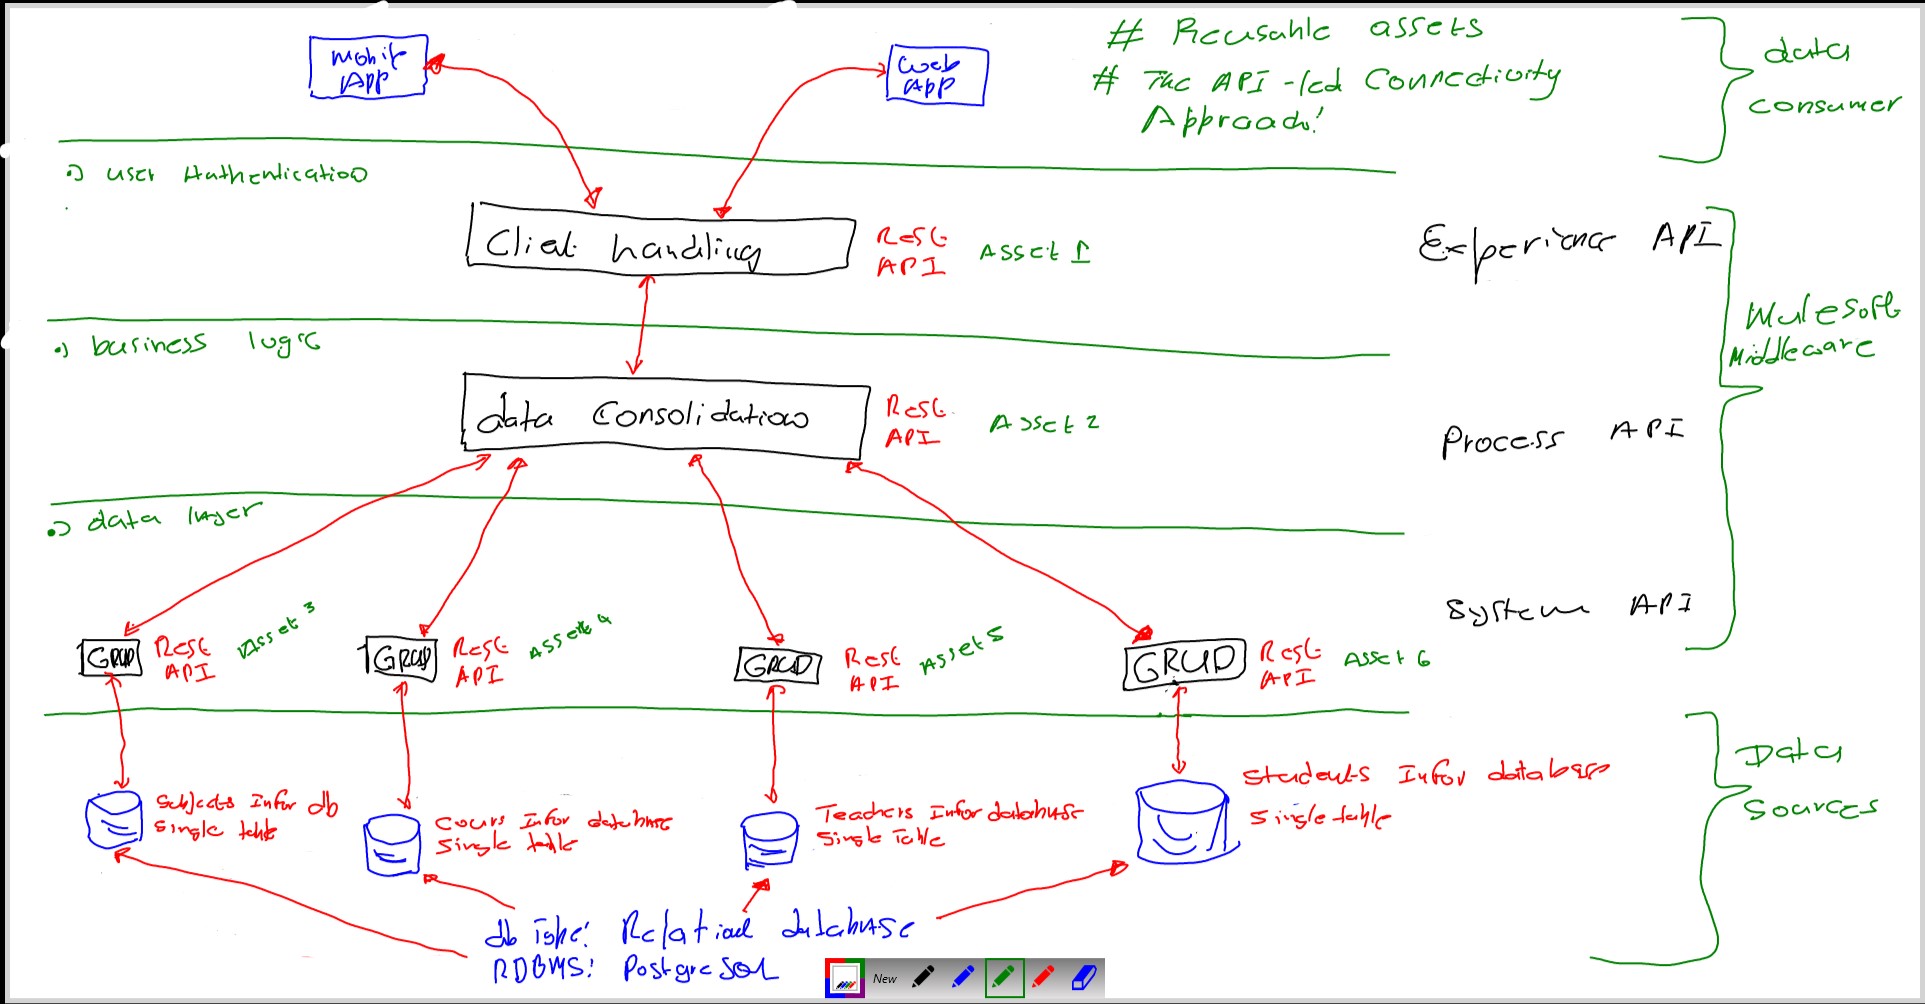 Mobile
App
Web
App
# Reusable assets
# The API-led Connectivity
Approach!
data
consumer
•) user Authentication
Client handling
Rest
API
Asset 1
Experience API
•) business logic
Mulesoft
Middleware
data Consolidation
Rest
API
Asset 2
Process API
•) data layer
System API
GRUD
Rest
API
Asset 3
GRUD
Rest
API
Asset 4
GRUD
Rest
API
Asset 5
GRUD
Rest
API
Asset 6
Subjects Infor db
Single table
Cours Infor database
Single table
Teachers Infor database
Single Table
Students Infor database
Single table
Data
Sources
db Type: Relational database
RDBMS: PostgreSQL
New